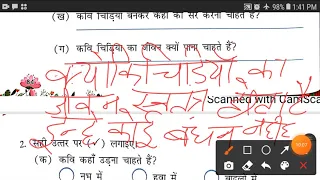 98% 1:41 PM
(ख) कवि चिड़िया बनकर कहाँ की सैर करना चाहते हैं?
(ग) कवि चिड़िया का जीवन क्यों पाना चाहते हैं?
क्योंकि चिड़िया का
जीवन स्वतंत्र होता है
Scanned with CamScan
इन्हें कोई बंधन नहीं है
2. सही उत्तर पर (✓) लगाइए
(क) कवि कहाँ उड़ना चाहते हैं?
नभ में हवा में बादलों में